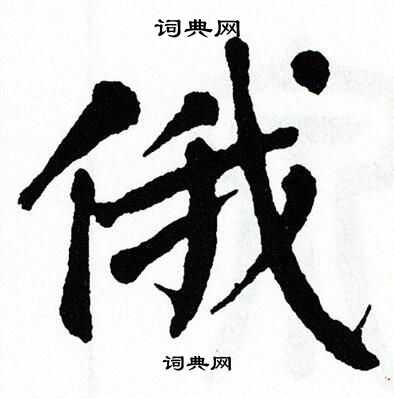 词典网
俄
词典网